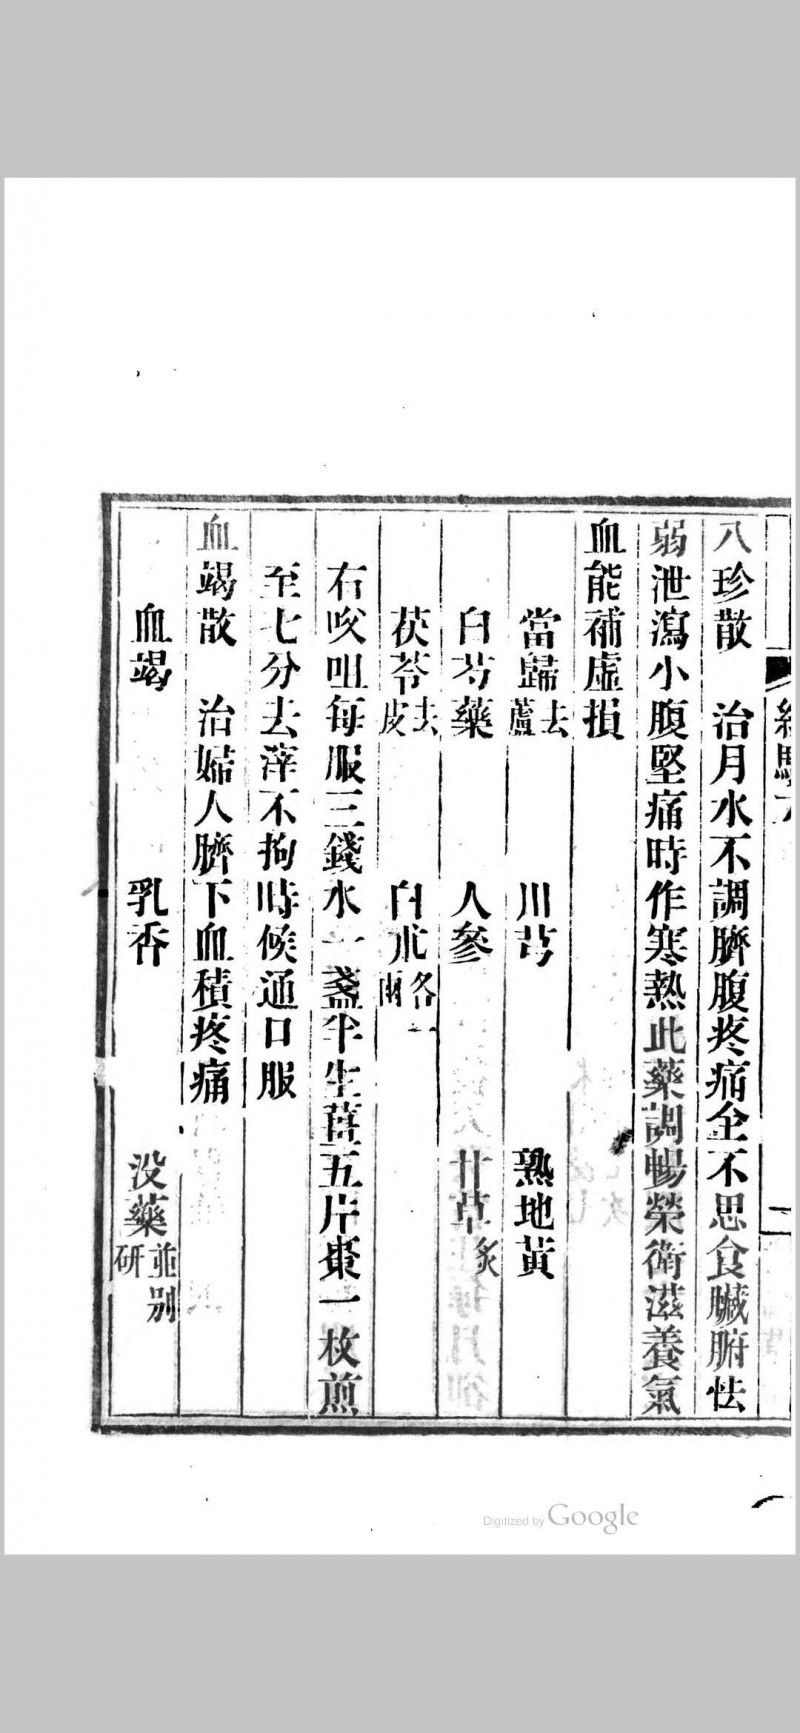 八珍散　治月水不調臍腹疼痛全不思食臟腑怯
弱泄瀉小腹堅痛時作寒熱此藥調暢榮衛滋養氣
血能補虛損
當歸去蘆　川芎　熟地黃
白芍藥　人參　甘草炙
茯苓去皮　白朮各一兩
右㕮咀每服三錢水一盞半生薑五片棗一枚煎
至七分去滓不拘時候通口服
血竭散　治婦人臍下血積疼痛
血竭　乳香　沒藥並別研
Digitized by Google